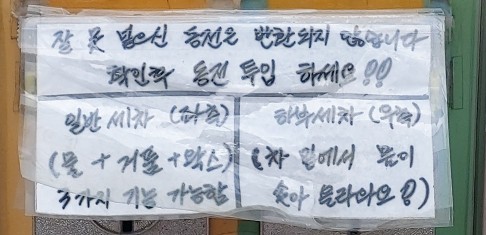 잘 못 넣으신 동전은 반환되지 않습니다
확인학 동전 투입 하세요!!
일반세차 (좌측)
하부세차 (우측)
(물 + 거품 + 왁스)
3가지 기능 가능함
(차 밑에서 물이
솟아 올라와요!)